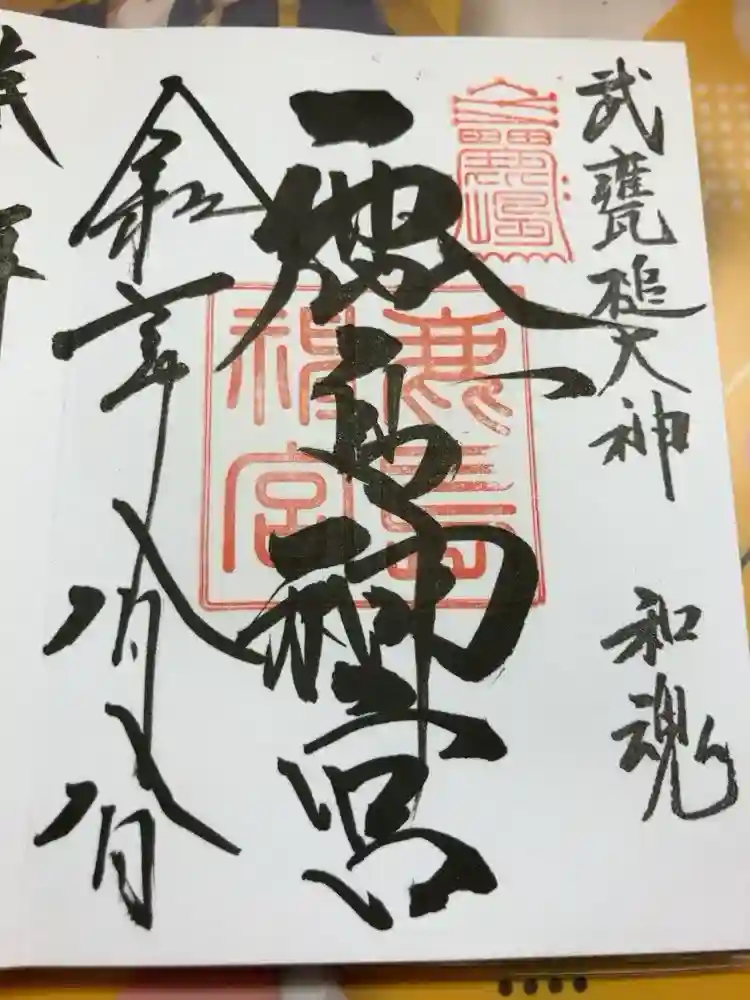 武甕槌大神 和魂
鹿島神宮
鹿島
神宮
令和元年八月八日